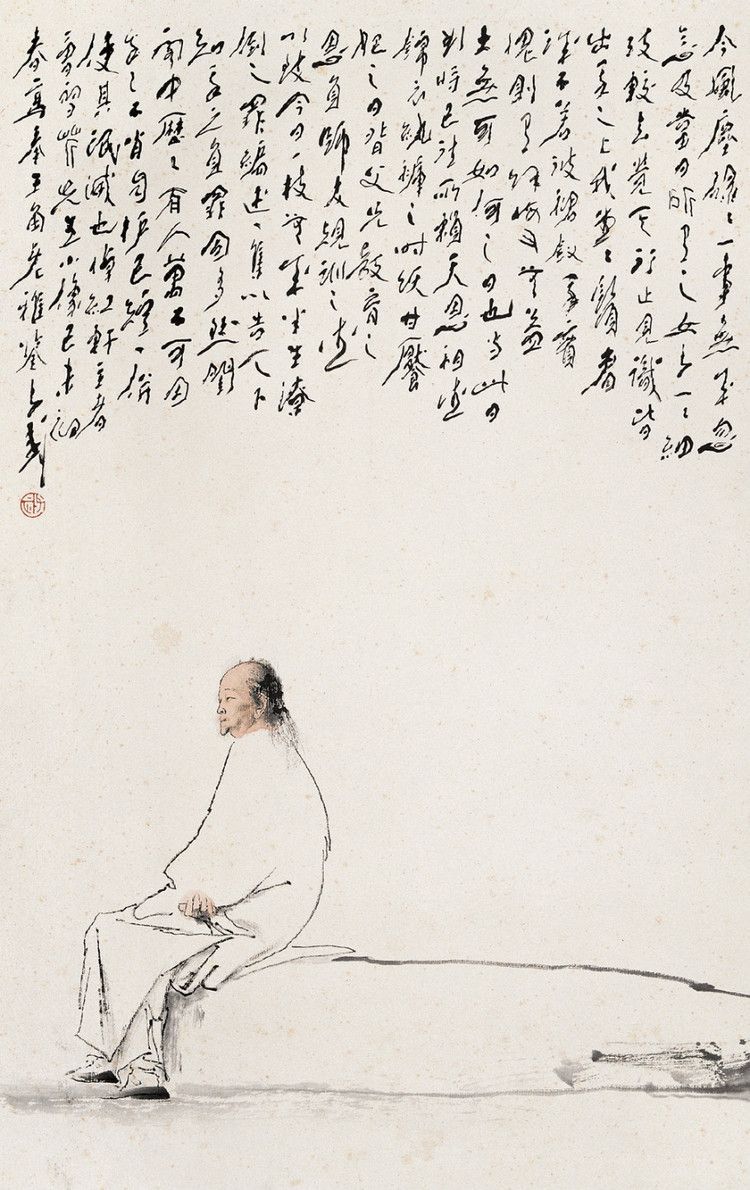 今風塵碌々一事無成忽
念及當日所有之女子一々細
攷較去覺其行止見識皆
出於我之上我堂々鬚眉
誠不若彼裙釵我實
愧則有餘悔又無益
大無可如何之日也當此日
將已往所賴天恩祖德
錦衣紈褲之時飫甘饜
肥之日背父兄教育之
恩負師友規訓之德
以致今日一技無成半生潦
倒之罪編述一集以告天下
知我之負罪固多然閨
閣中歷々有人萬不可因
我之不肖自护己短一併
使其泯滅也悼紅軒主者
曹雪芹先生小像己未初
春寫奉王角老雅鑒之武